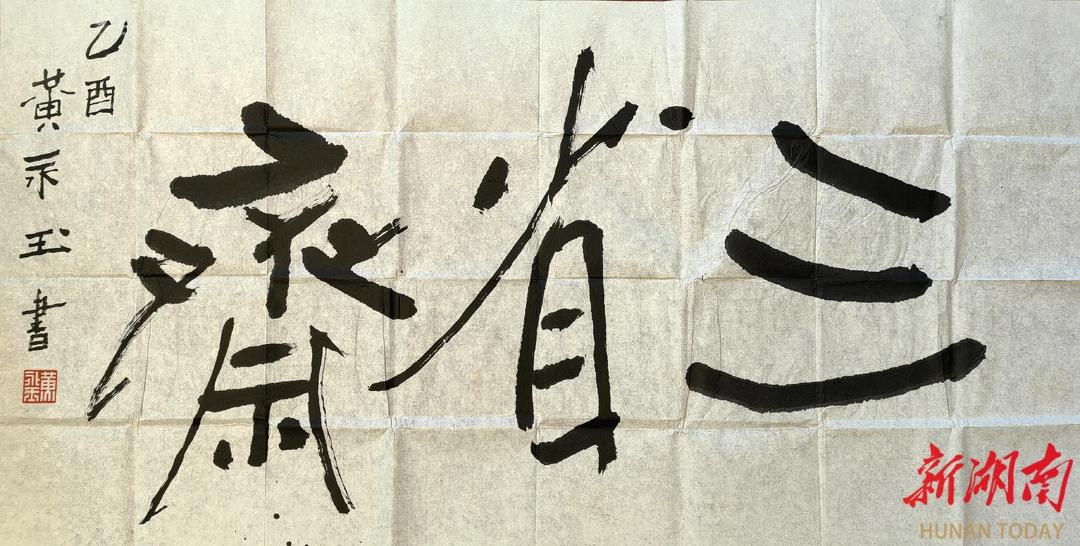 三省齋
乙酉
黃永玉書
新湖南
HUNAN TODAY